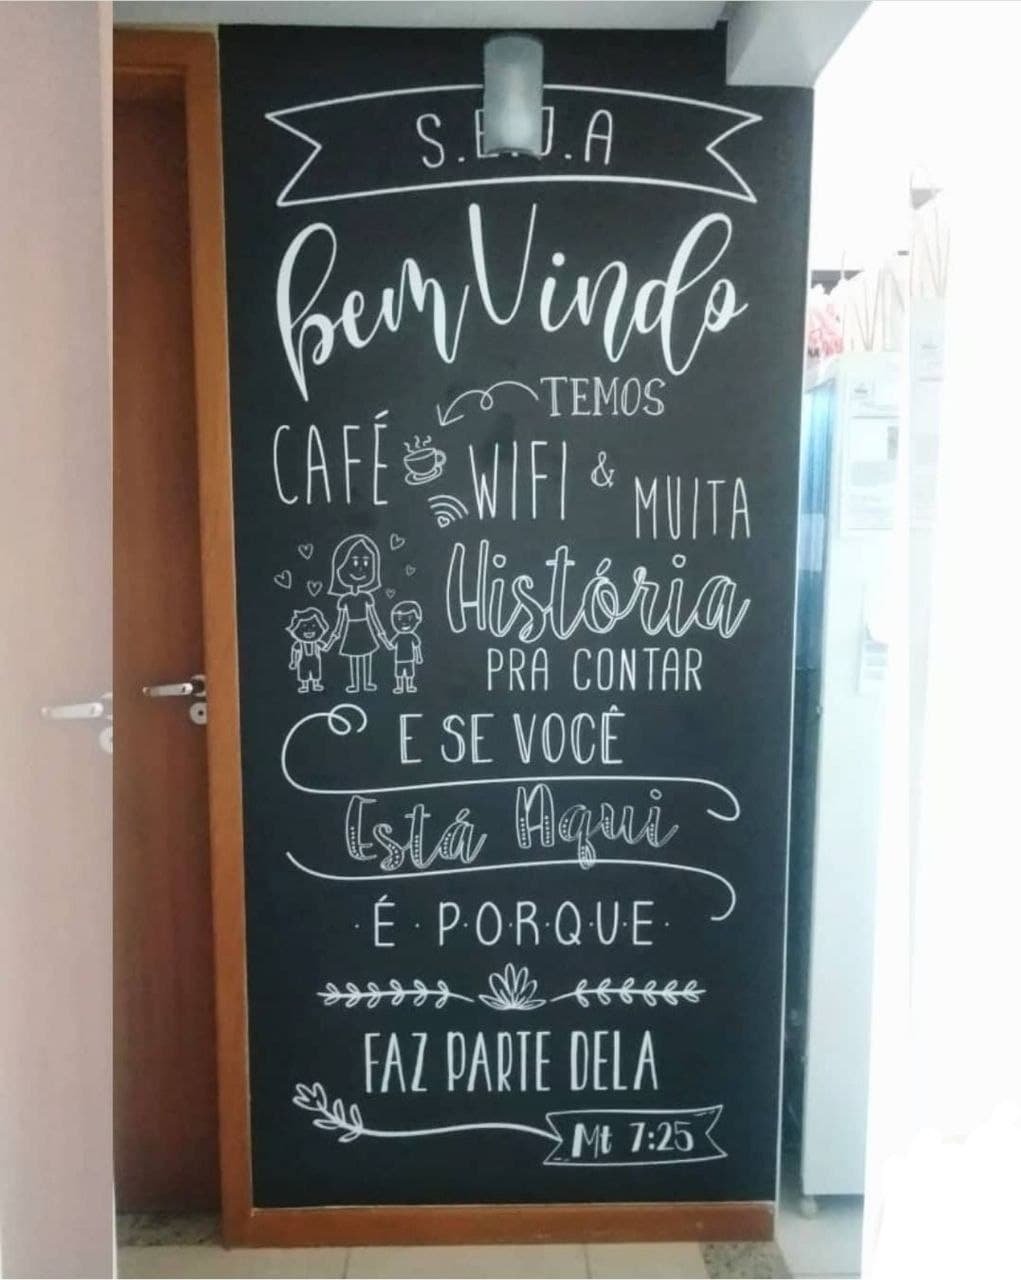 S.E.J.A
bem Vindo
TEMOS
CAFÉ WIFI & MUITA
História
PRA CONTAR
E SE VOCÊ
Está Aqui
· É · P·O·R·Q·U·E ·
FAZ PARTE DELA
Mt 7:25